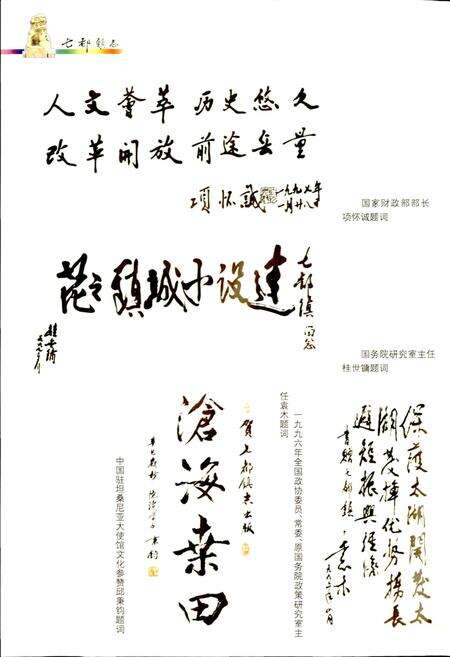 七都镇志
人文荟萃 历史悠久
改革開放 前途無量
項怀誠
一九九七年
一月廿八日
国家财政部部长
项怀诚题词
七都镇留念
建设小城镇之花
桂世镛
国务院研究室主任
桂世镛题词
保護太湖開發太
湖發揮优势揚長
避短振興经济
書赠七都鎮
袁木
一九九六年全国政协委员、常委、原国务院政策研究室主
任袁木题词
贺七都镇志出版
滄海桑田
中国驻坦桑尼亚大使馆文化参赞邱秉钧题词